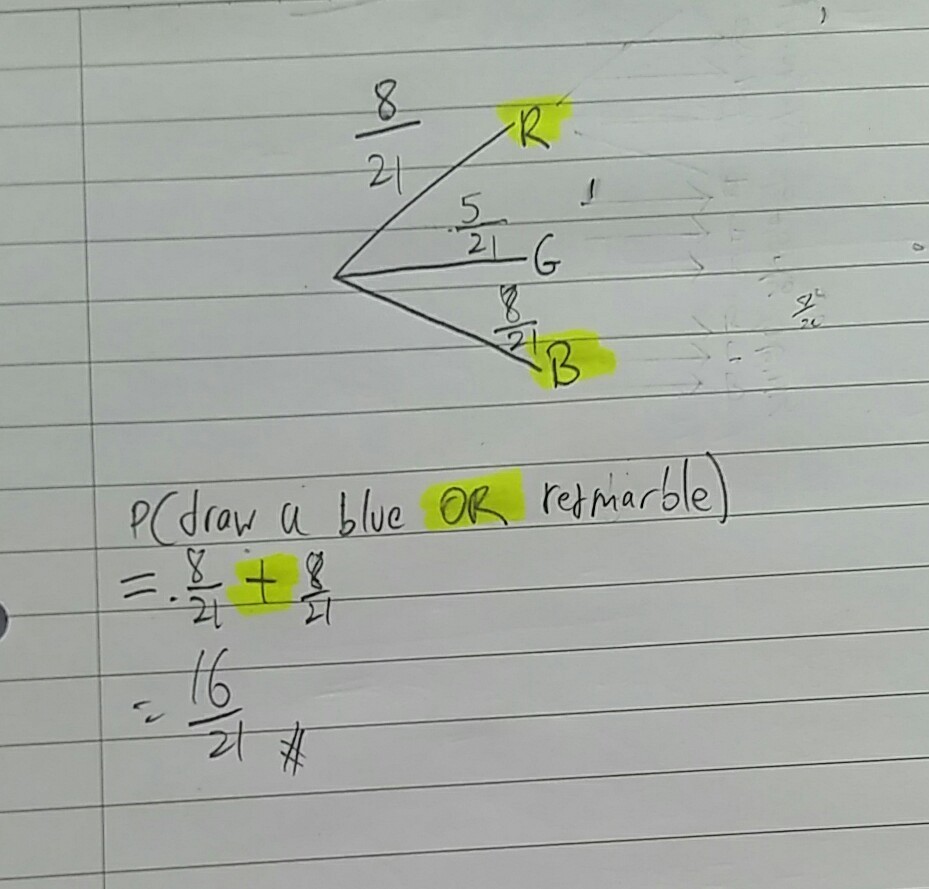 8/21 R
5/21 G
8/21 B
P(draw a blue OR red marble)
= 8/21 + 8/21
= 16/21 #